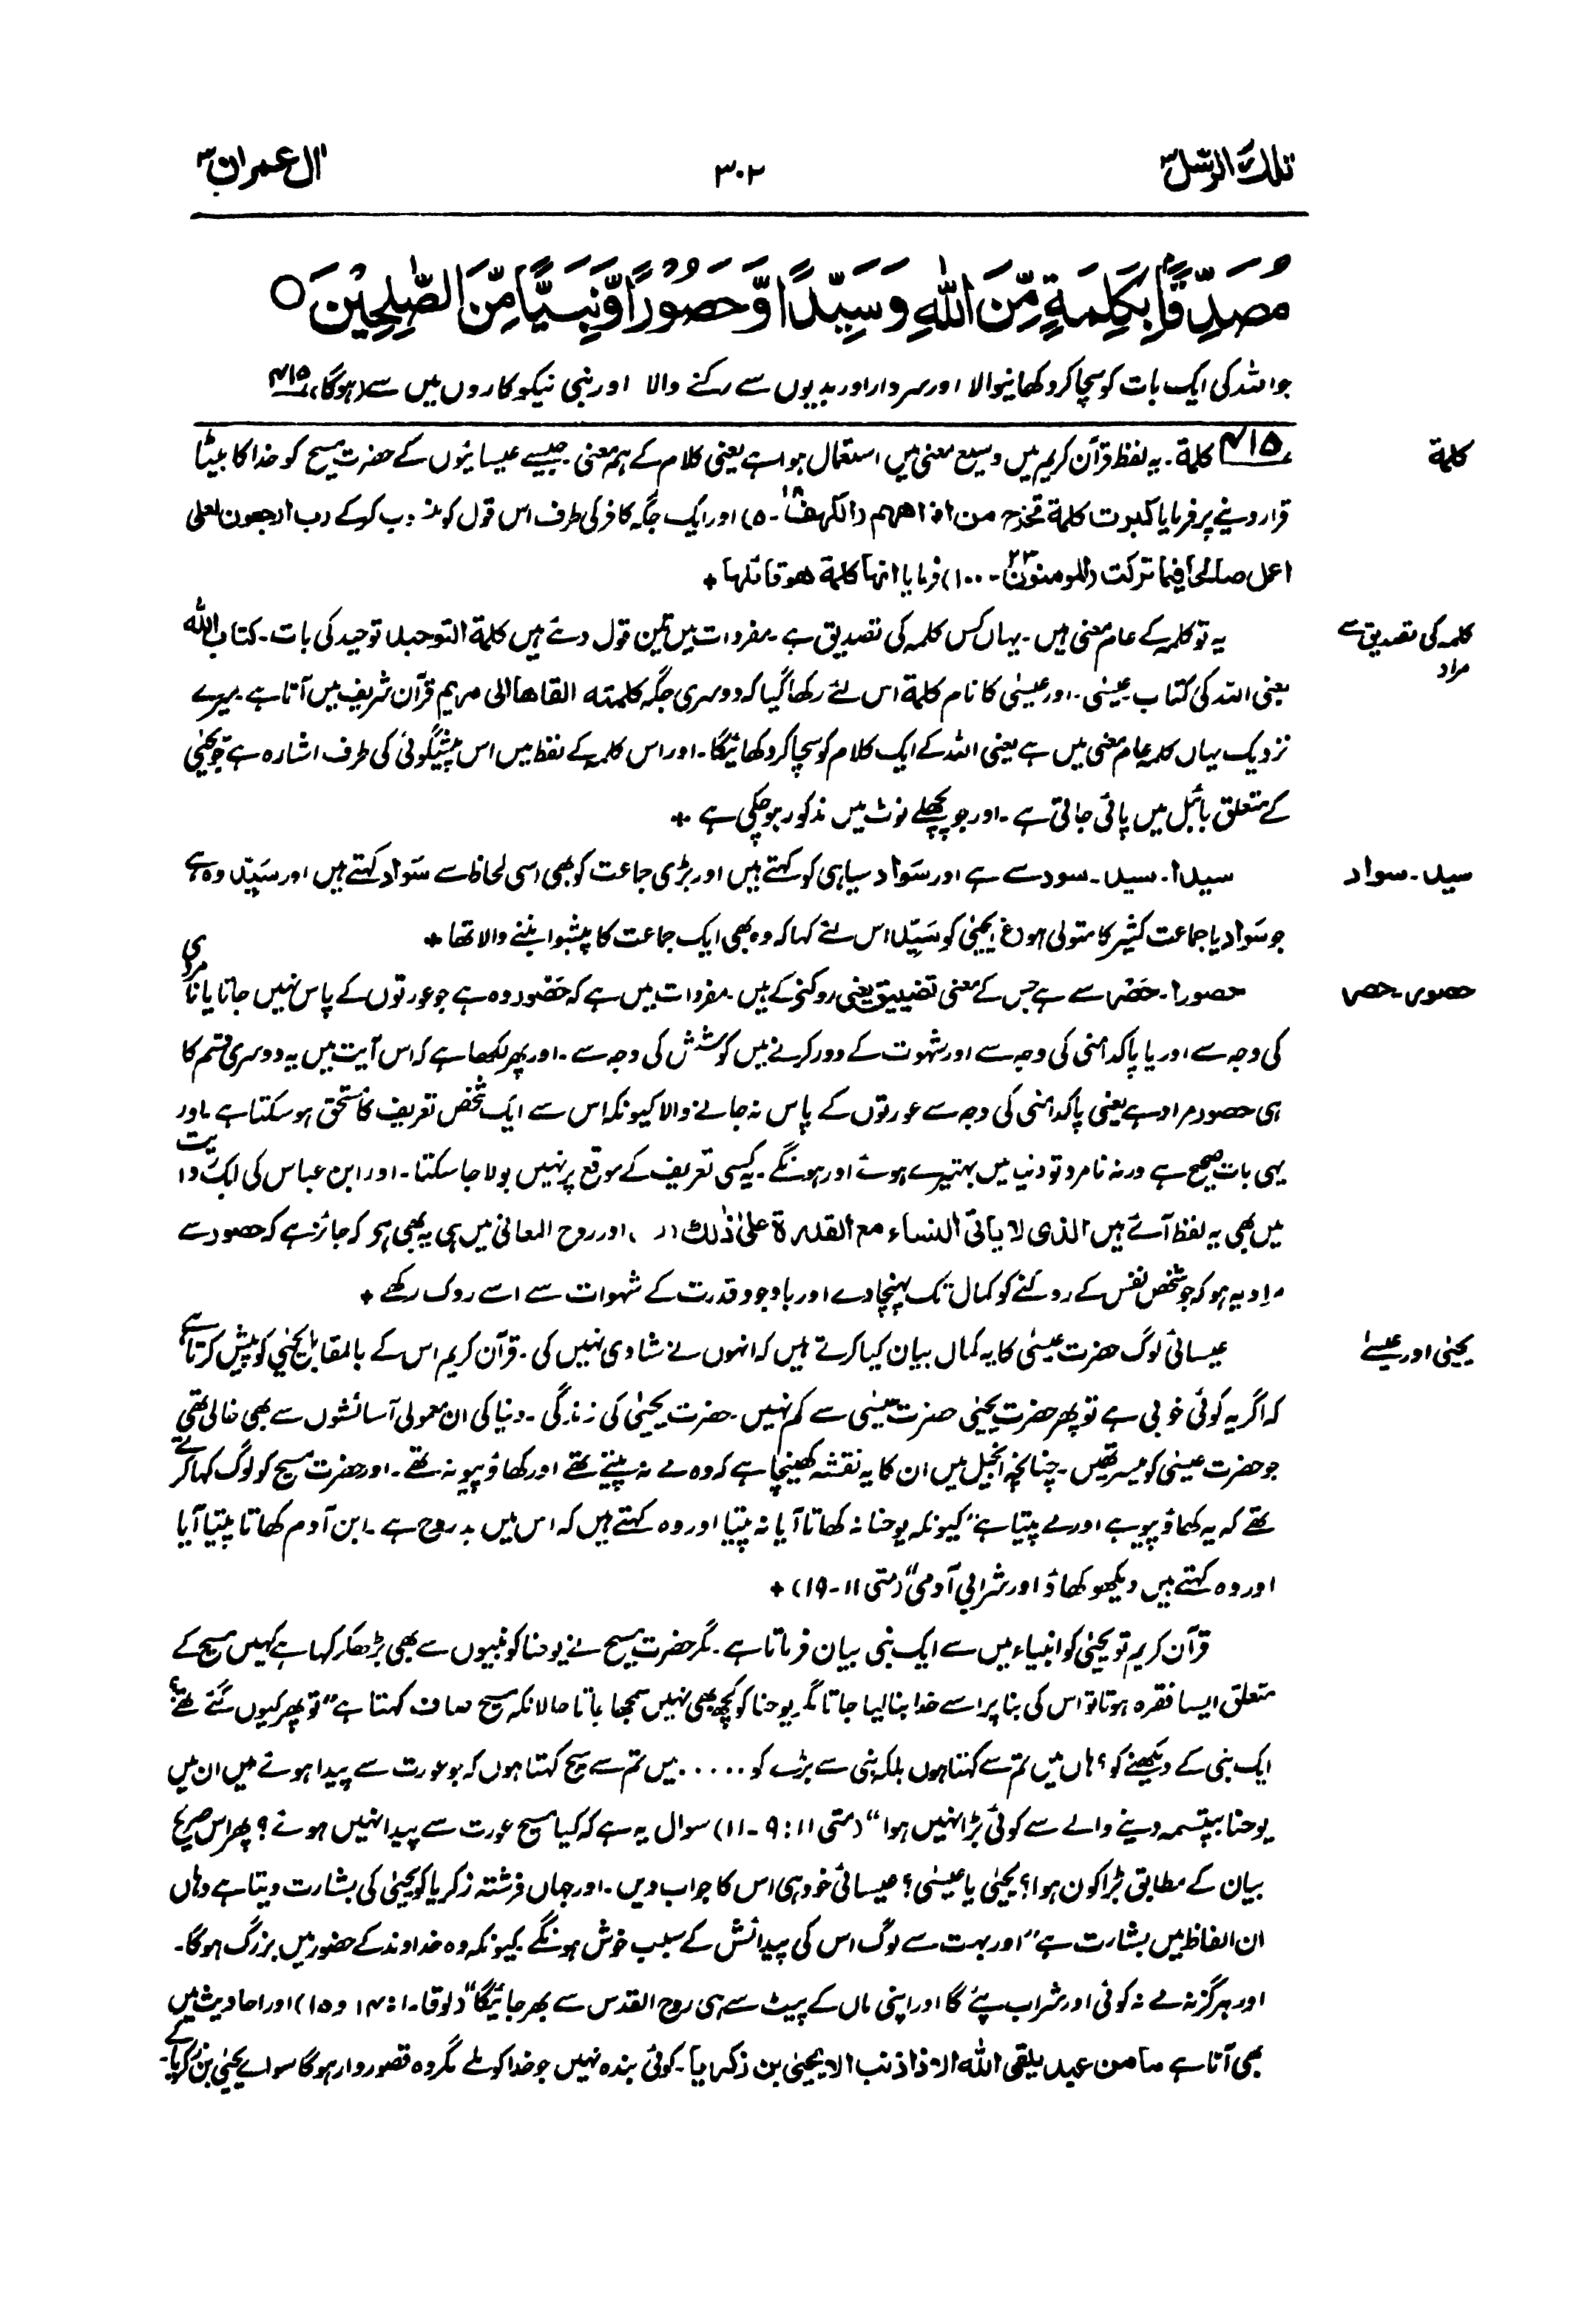 تلك الرسل ۳
۳۰۲
ال عمران ۳
مُصَدِّقًۢا بِكَلِمَةٍ مِّنَ اللّٰهِ وَسَيِّدًا وَّحَصُوْرًا وَّنَبِيًّا مِّنَ الصّٰلِحِيْنَ ○
جو اللہ کی ایک بات کو سچا کر دکھانیوالا اور سردار اور بدیوں سے رکنے والا اور نبی نیکوکاروں میں سے (ہوگا) ۴۱۵
کلمة
۴۱۵ کلمة۔ یہ لفظ قرآن کریم میں وسیع معنی میں استعمال ہوا ہے یعنی کلام کے ہم معنی۔ جیسے عیسائیوں کے حضرت مسیح کو خدا کا بیٹا
قرار دینے پر فرمایا کبرت کلمة تخرج من افواههم (الکہف ۱۸۔۵) اور ایک جگہ کافر کی طرف اس قول کو منسوب کرکے رب ارجعون لعلی
اعمل صالحا فیما ترکت (المومنون ۲۳۔۱۰۰) فرمایا انها کلمة هو قائلها ✦
کلمہ کی تصدیق سے
مراد
یہ تو کلمہ کے عام معنی ہیں۔ یہاں کس کلمہ کی تصدیق ہے۔ مفردات میں تین قول دئے ہیں کلمة التوحید توحید کی بات۔ کتاب اللہ
یعنی اللہ کی کتاب عیسٰی۔ اور عیسٰی کا نام کلمة اس لئے رکھا گیا کہ دوسری جگہ کلمته القاها الی مریم قرآن شریف میں آتا ہے۔ میرے
نزدیک یہاں کلمہ عام معنی میں ہے یعنی اللہ کے ایک کلام کو سچا کر دکھائیگا۔ اور اس کلمہ کے لفظ میں اس پیشگوئی کی طرف اشارہ ہے جو یحیٰی
کے متعلق بائبل میں پائی جاتی ہے۔ اور جو پچھلے نوٹ میں مذکور ہو چکی ہے ✦
سید۔ سواد
سیدا۔ سید۔ سود سے ہے اور سَوَاد سیاہی کو کہتے ہیں اور بڑی جماعت کو بھی اسی لحاظ سے سَوَاد کہتے ہیں اور سَیِّد وہ ہے
جو سَوَاد یا جماعت کثیر کا متولی ہو (غ) یحیٰی کو سَیِّد اس لئے کہا کہ وہ بھی ایک جماعت کا پیشوا بننے والا تھا ✦
حصور۔ حصر
حصورا۔ حَصْر سے ہے جس کے معنی تضییق یعنی روکنے کے ہیں۔ مفردات میں ہے کہ حَصُور وہ ہے جو عورتوں کے پاس نہیں جاتا یا نامردی
کی وجہ سے اور یا پاکدامنی کی وجہ سے اور شہوت کے دور کرنے میں کوشش کی وجہ سے۔ اور پھر لکھا ہے کہ اس آیت میں یہ دوسری قسم کا
ہی حصور مراد ہے یعنی پاکدامنی کی وجہ سے عورتوں کے پاس نہ جانے والا کیونکہ اس سے ایک شخص تعریف کا مستحق ہو سکتا ہے۔ اور
یہی بات صحیح ہے ورنہ نامرد تو دنیا میں بہتیرے ہوئے اور ہونگے۔ یہ کسی تعریف کے موقع پر نہیں بولا جا سکتا۔ اور ابن عباس کی ایک روایت
میں بھی یہ لفظ آئے ہیں الذی لا یاتی النساء مع القدرة علیٰ ذٰلک (ر)، اور روح المعانی میں ہی یہ بھی ہے کہ جائز ہے کہ حصور سے
مراد یہ ہو کہ جو شخص نفس کے روکنے کو کمال تک پہنچا دے اور باوجود قدرت کے شہوات سے اسے روک رکھے ✦
یحیٰی اور عیسٰے
عیسائی لوگ حضرت عیسٰی کا یہ کمال بیان کیا کرتے ہیں کہ انہوں نے شادی نہیں کی۔ قرآن کریم اس کے بالمقابل یحیٰی کو پیش کرتا ہے
کہ اگر یہ کوئی خوبی ہے تو پھر حضرت یحیٰی حضرت عیسٰی سے کم نہیں۔ حضرت یحیٰی کی زندگی۔ دنیا کی ان معمولی آسائشوں سے بھی خالی تھی
جو حضرت عیسٰی کو میسر تھیں۔ چنانچہ انجیل میں ان کا یہ نقشہ کھینچا ہے کہ وہ مے نہ پیتے تھے اور کھاؤ پیو نہ تھے۔ اور حضرت مسیح کو لوگ کہا کرتے
تھے کہ یہ کھاؤ پیو ہے اور مے پیتا ہے ”کیونکہ یوحنا نہ کھاتا آیا نہ پیتا اور وہ کہتے ہیں کہ اس میں بد روح ہے۔ ابن آدم کھاتا پیتا آیا
اور وہ کہتے ہیں دیکھو کھاؤ اور شرابی آدمی“ (متی ۱۱۔۱۹) ✦
قرآن کریم تو یحیٰی کو انبیاء میں سے ایک نبی بیان فرماتا ہے۔ مگر حضرت مسیح نے یوحنا کو نبیوں سے بھی بڑھکر کہا ہے کہیں مسیح کے
متعلق ایسا فقرہ ہوتا تو اس کی بنا پر اسے خدا بنا لیا جاتا مگر یوحنا کو کچھ بھی نہیں سمجھا جاتا حالانکہ مسیح صاف کہتا ہے ”تو پھر کیوں گئے تھے؟
ایک نبی کے دیکھنے کو؟ ہاں میں تم سے کہتا ہوں بلکہ نبی سے بڑے کو . . . . . میں تم سے سچ کہتا ہوں کہ جو عورت سے پیدا ہوئے ہیں ان میں
یوحنا بپتسمہ دینے والے سے کوئی بڑا نہیں ہوا“ (متی ۱۱ : ۹۔۱۱) سوال یہ ہے کہ کیا مسیح عورت سے پیدا نہیں ہوئے؟ پھر اس صریح
بیان کے مطابق بڑا کون ہوا؟ یحیٰی یا عیسٰی؟ عیسائی خود ہی اس کا جواب دیں۔ اور جہاں فرشتہ زکریا کو یحیٰی کی بشارت دیتا ہے وہاں
ان الفاظ میں بشارت ہے ”اور بہت سے لوگ اس کی پیدائش کے سبب خوش ہونگے کیونکہ وہ خداوند کے حضور میں بزرگ ہوگا۔
اور ہرگز نہ مے نہ کوئی اور شراب پئے گا اور اپنی ماں کے پیٹ سے ہی روح القدس سے بھر جائیگا“ (لوقا۔ ۱ : ۱۴ و ۱۵) اور احادیث میں
بھی آتا ہے ما من عبد یلقی اللہ الا ذا ذنب الا یحیٰی بن زکریا۔ کوئی بندہ نہیں جو خدا کو ملے مگر وہ قصوروار ہوگا سوائے یحیٰی بن زکریا کے۔